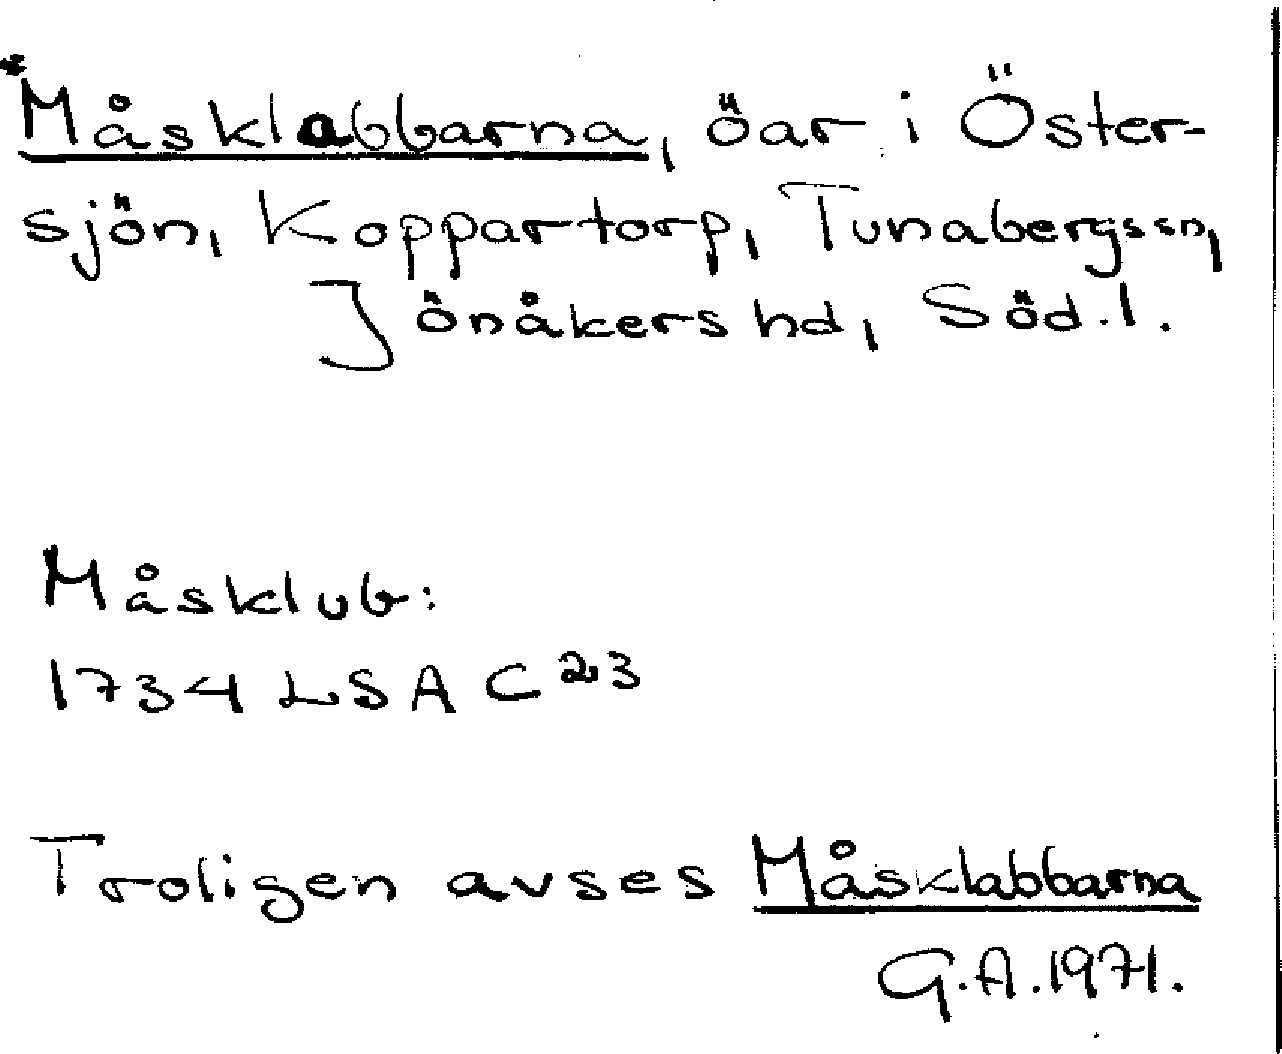 *Måsklabbarna, öar i Öster-
sjön, Koppartorp, Tunabergssn,
Jönåkers hd, Söd.l.
Måsklub:
1734 LSA C 23
Troligen avses Måsklabbarna
G.A.1971.